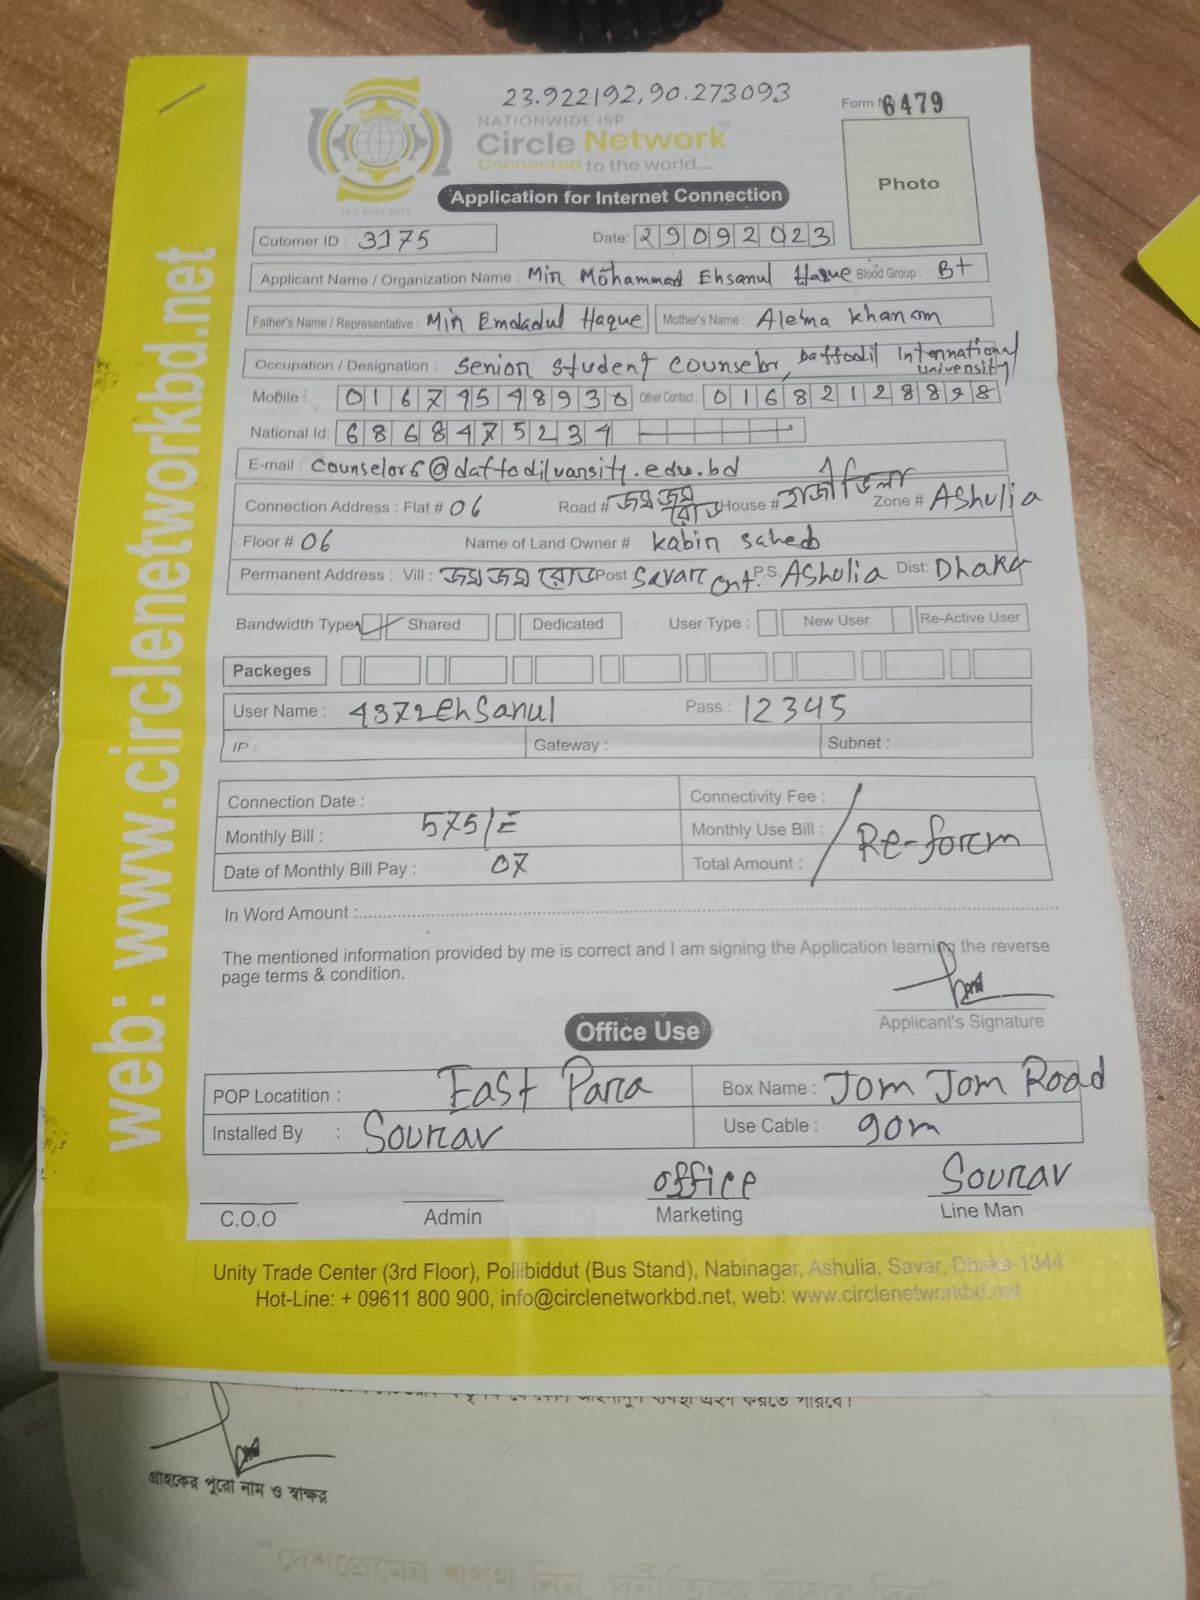 23.922192,90.273093
Form No 6479
NATIONWIDE ISP
Circle Network
Connected to the world....
Photo
ISO 9001:2015
Application for Internet Connection
Cutomer ID : 3175 Date: 29092023
Applicant Name / Organization Name : Mir Mohammad Ehsanul Haque Blood Group : B+
Father's Name / Representative : Mir Emdadul Haque Mother's Name : Alema Khanom
Occupation / Designation : Senior Student Counselor, Daffodil International University
Mobile : 01674548930 Other Contact : 01682128898
National Id: 6868475234
E-mail : Counselor6@daffodilvarsity.edu.bd
Connection Address : Flat # 06 Road # জম জম রোড House # হাজী ভিলা Zone # Ashulia
Floor # 06 Name of Land Owner # Kabir Saheb
Permanent Address : Vill : জম জম রোড Post Savar Cnt. P.S. Ashulia Dist: Dhaka
Bandwidth Type Shared Dedicated User Type : New User Re-Active User
Packeges
User Name : 4372Ehsanul Pass : 12345
IP : Gateway : Subnet :
Connection Date : Connectivity Fee :
Monthly Bill : 575/= Monthly Use Bill : Re-form
Date of Monthly Bill Pay : 07 Total Amount :
In Word Amount :
The mentioned information provided by me is correct and I am signing the Application learning the reverse
page terms & condition.
Applicant's Signature
Office Use
POP Locatition : East Para Box Name : Jom Jom Road
Installed By : Sourav Use Cable : 90m
office Sourav
C.O.O Admin Marketing Line Man
Unity Trade Center (3rd Floor), Pollibiddut (Bus Stand), Nabinagar, Ashulia, Savar, Dhaka-1344
Hot-Line: + 09611 800 900, info@circlenetworkbd.net, web: www.circlenetworkbd.net
web: www.circlenetworkbd.net
গ্রাহকের পুরো নাম ও স্বাক্ষর
"দেশপ্রেমের শপথ নিন, দুর্নীতিকে বিদায় দিন"